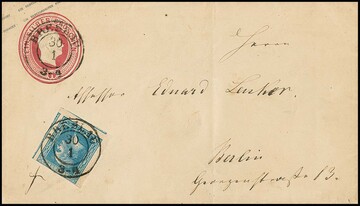 BRESLAU
30
1
3-4
Herrn
Assessor Eduard
BRESLAU
30
1
3-4
Berlin
Georgenstrasse 13.